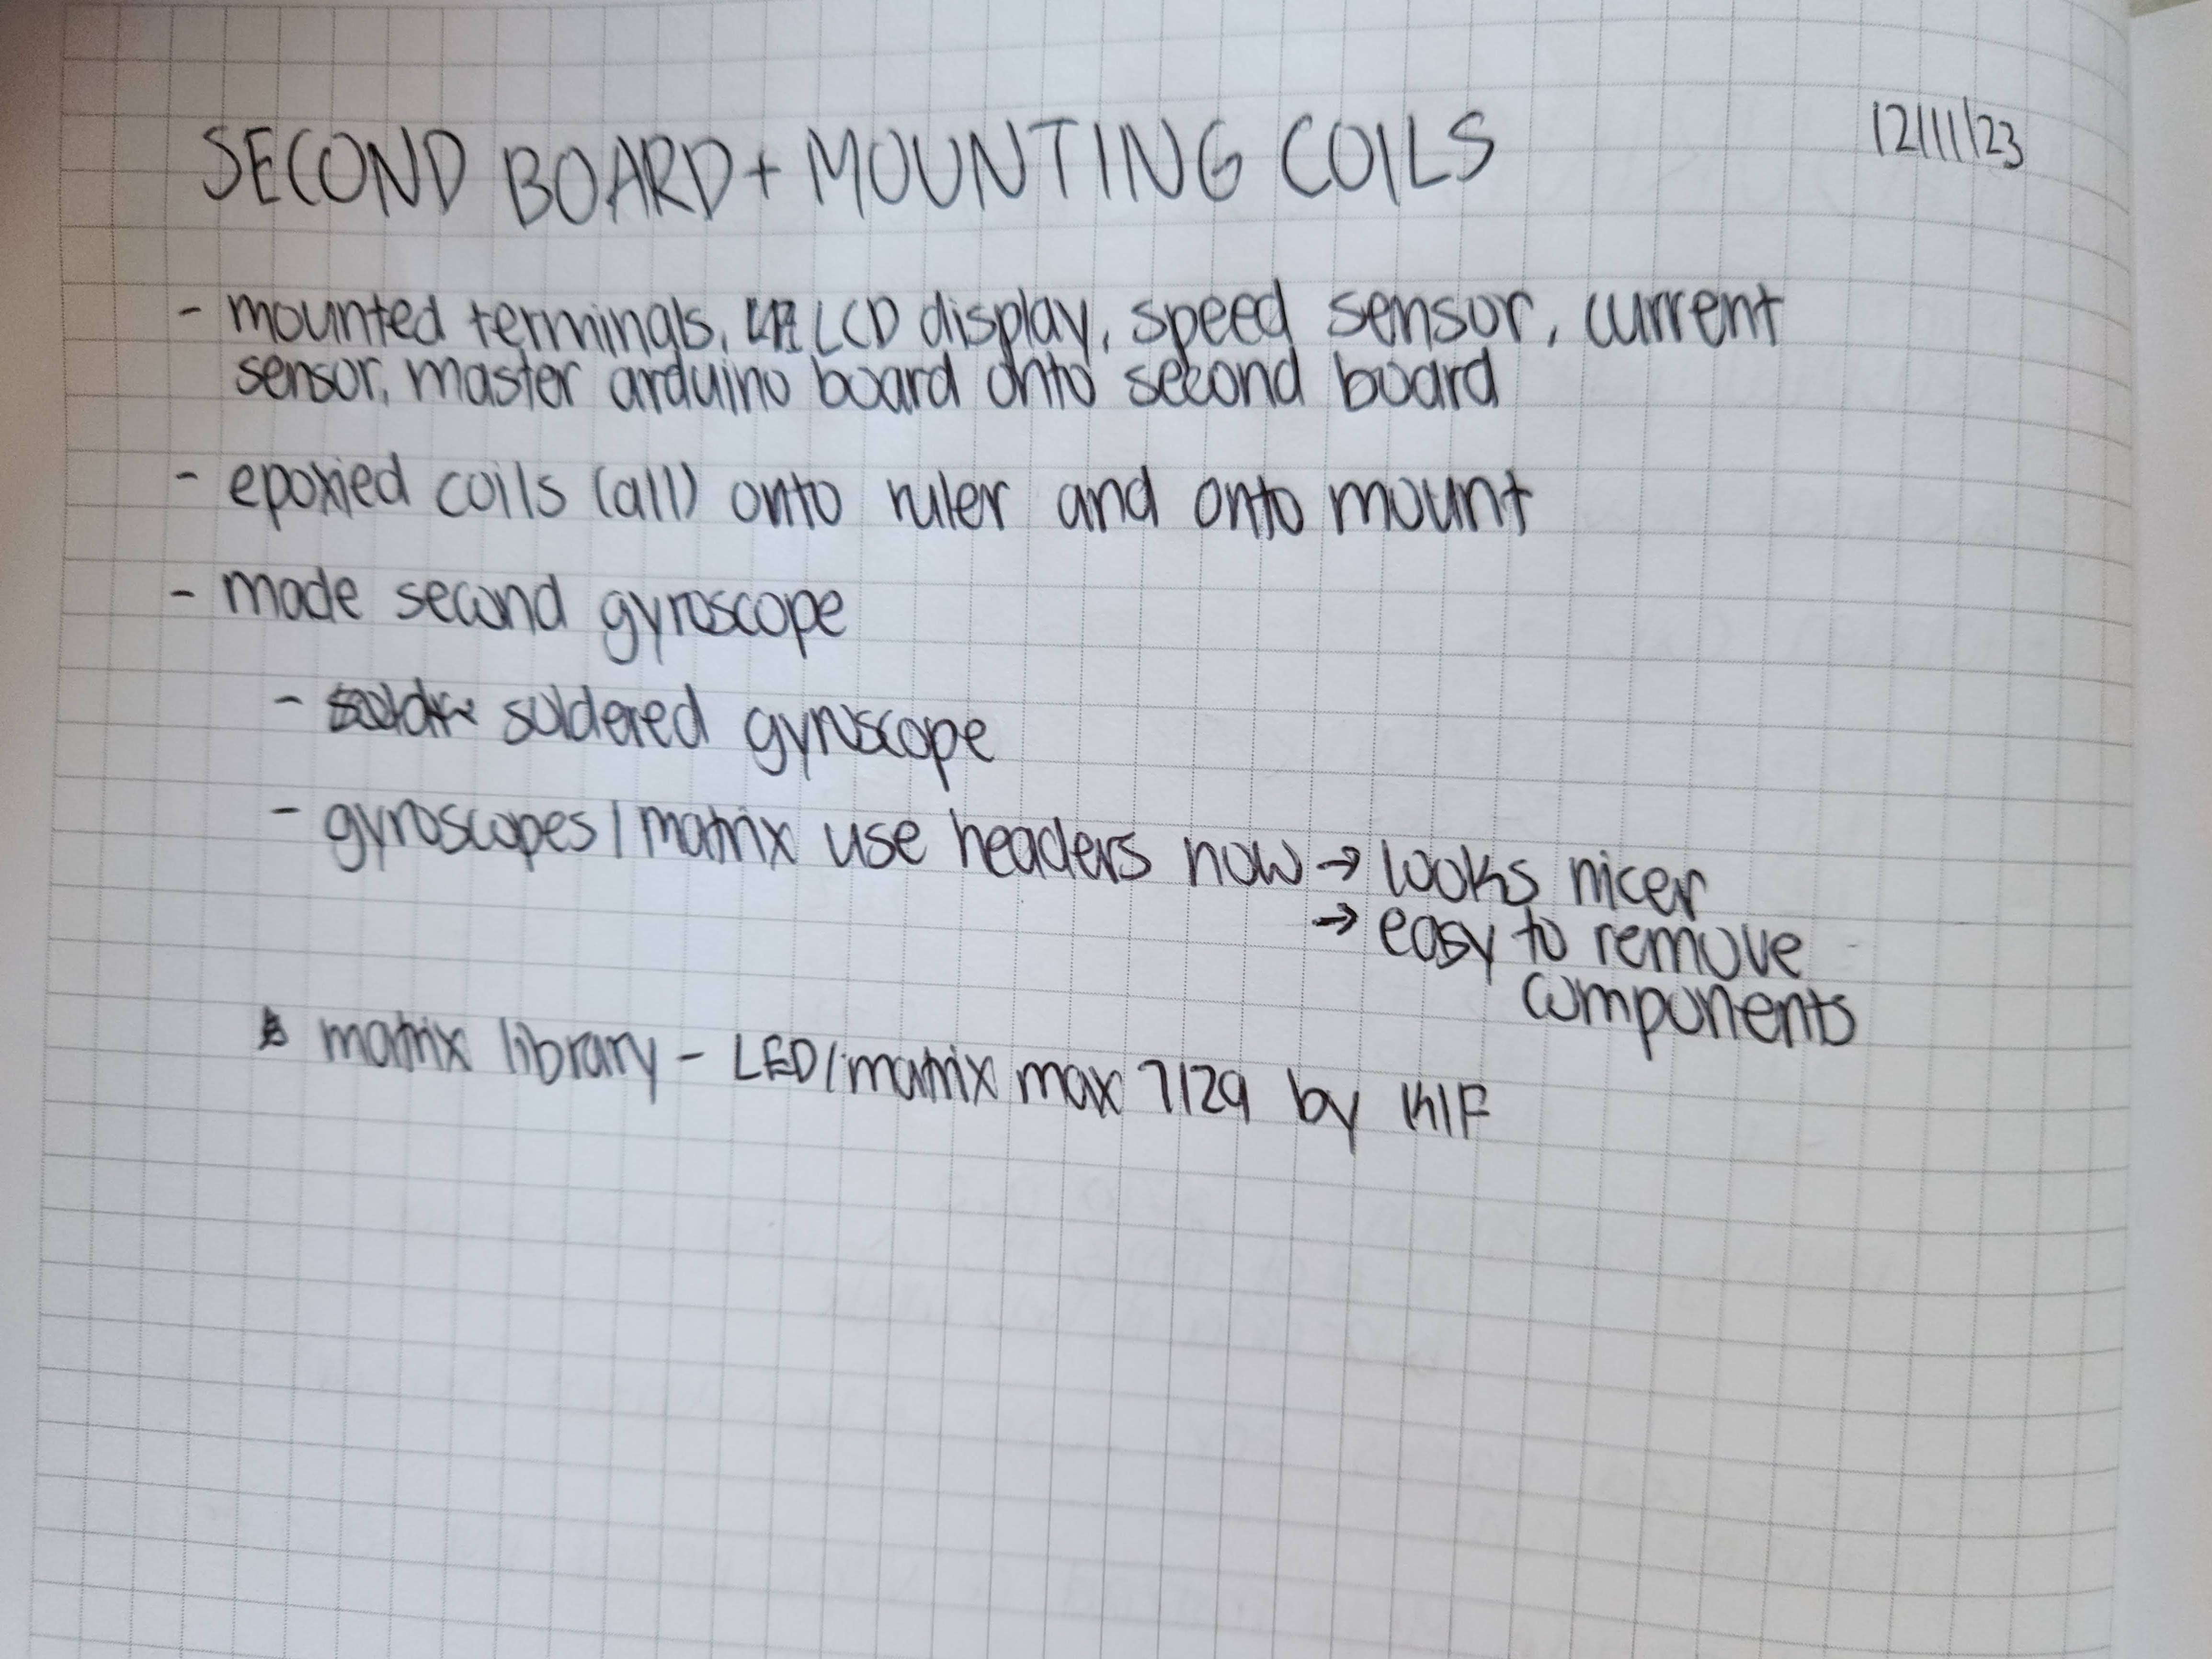 SECOND BOARD + MOUNTING COILS 12/11/23
- mounted terminals, LCD display, speed sensor, current
sensor, master arduino board onto second board
- epoxied coils (all) onto ruler and onto mount
- made second gyroscope
- soldered gyroscope
- gyroscopes/matrix use headers now → looks nicer
→ easy to remove
components
matrix library - LED/matrix max 7129 by